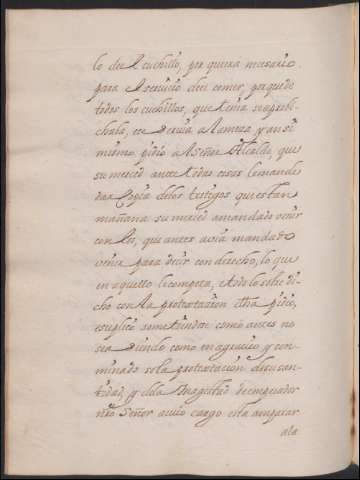 lo del cuchillo, por que era necesario
para el servicio del comer, porque de
todos los cuchillos, que tenia se aprobe
chaba, e se servia a la mesa, y ansi
mismo pidio al Señor Alcalde, que
su merced ante todas cosas le mande
dar Copia de los testigos que estan
mañana su merced a mandado venir
con los, que antes avia mandado
venir para decir con derecho, lo que
en aquello le competa, e todo lo sobre di
cho con la protestacion dha pidio,
e suplicó sometiendose como antes no
sea siendo como en agravio, y con
minado so la protestacion de su san
tidad, y de la Magestad de emperador
nro Señor a cuio cargo esta amparar
ala